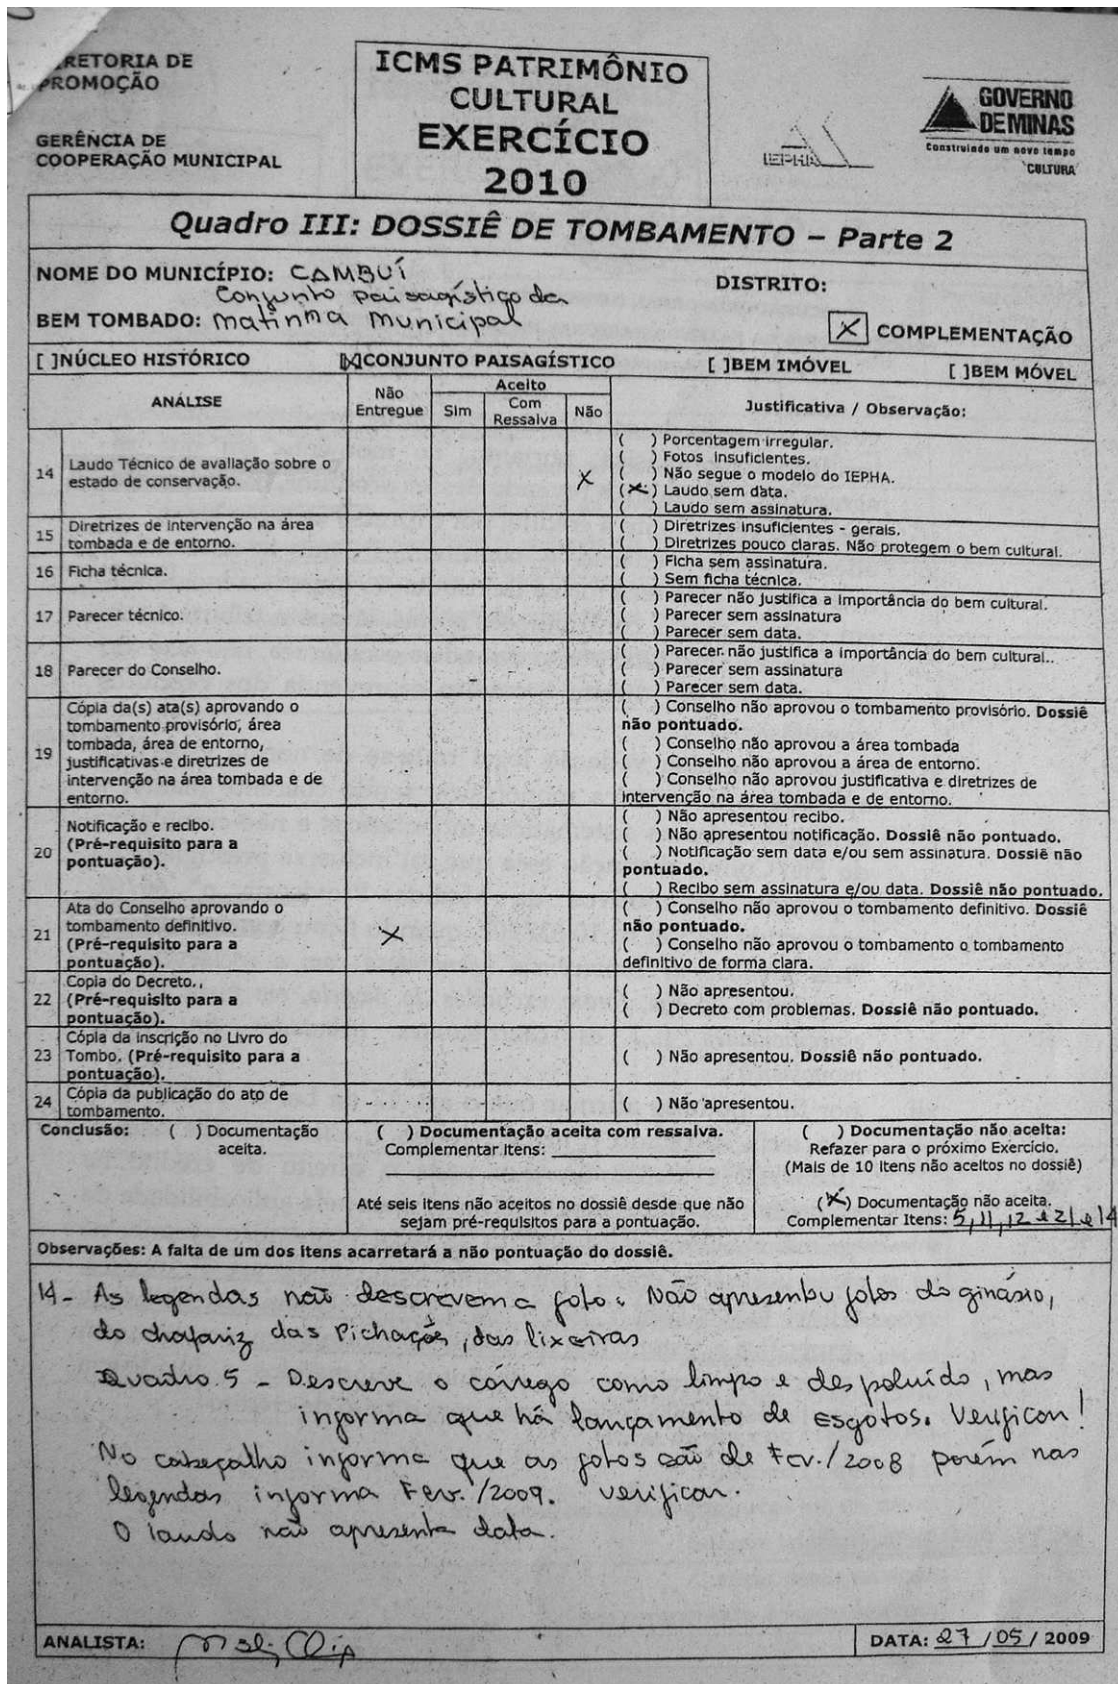 RETORIA DE
PROMOÇÃO
GERÊNCIA DE
COOPERAÇÃO MUNICIPAL
ICMS PATRIMÔNIO
CULTURAL
EXERCÍCIO
2010
IEPHA
GOVERNO
DE MINAS
Construindo um novo tempo
CULTURA
Quadro III: DOSSIÊ DE TOMBAMENTO – Parte 2
NOME DO MUNICÍPIO: CAMBUÍ
DISTRITO:
Conjunto paisagístico da
BEM TOMBADO: Matinha Municipal
[X] COMPLEMENTAÇÃO
[ ]NÚCLEO HISTÓRICO [X]CONJUNTO PAISAGÍSTICO [ ]BEM IMÓVEL [ ]BEM MÓVEL
ANÁLISE
Não
Entregue
Aceito
Sim
Com
Ressalva
Não
Justificativa / Observação:
14
Laudo Técnico de avaliação sobre o
estado de conservação.
X
( ) Porcentagem irregular.
( ) Fotos insuficientes.
( ) Não segue o modelo do IEPHA.
(X) Laudo sem data.
( ) Laudo sem assinatura.
15
Diretrizes de intervenção na área
tombada e de entorno.
( ) Diretrizes insuficientes - gerais.
( ) Diretrizes pouco claras. Não protegem o bem cultural.
16
Ficha técnica.
( ) Ficha sem assinatura.
( ) Sem ficha técnica.
17
Parecer técnico.
( ) Parecer não justifica a importância do bem cultural.
( ) Parecer sem assinatura
( ) Parecer sem data.
18
Parecer do Conselho.
( ) Parecer não justifica a importância do bem cultural..
( ) Parecer sem assinatura
( ) Parecer sem data.
19
Cópia da(s) ata(s) aprovando o
tombamento provisório, área
tombada, área de entorno,
justificativas e diretrizes de
intervenção na área tombada e de
entorno.
( ) Conselho não aprovou o tombamento provisório. Dossiê
não pontuado.
( ) Conselho não aprovou a área tombada
( ) Conselho não aprovou a área de entorno.
( ) Conselho não aprovou justificativa e diretrizes de
intervenção na área tombada e de entorno.
20
Notificação e recibo.
(Pré-requisito para a
pontuação).
( ) Não apresentou recibo.
( ) Não apresentou notificação. Dossiê não pontuado.
( ) Notificação sem data e/ou sem assinatura. Dossiê não
pontuado.
( ) Recibo sem assinatura e/ou data. Dossiê não pontuado.
21
Ata do Conselho aprovando o
tombamento definitivo.
(Pré-requisito para a
pontuação).
X
( ) Conselho não aprovou o tombamento definitivo. Dossiê
não pontuado.
( ) Conselho não aprovou o tombamento o tombamento
definitivo de forma clara.
22
Copia do Decreto.,
(Pré-requisito para a
pontuação).
( ) Não apresentou.
( ) Decreto com problemas. Dossiê não pontuado.
23
Cópia da inscrição no Livro do
Tombo. (Pré-requisito para a
pontuação).
( ) Não apresentou. Dossiê não pontuado.
24
Cópia da publicação do ato de
tombamento.
( ) Não apresentou.
Conclusão: ( ) Documentação
aceita.
( ) Documentação aceita com ressalva.
Complementar itens:
Até seis itens não aceitos no dossiê desde que não
sejam pré-requisitos para a pontuação.
( ) Documentação não aceita:
Refazer para o próximo Exercício.
(Mais de 10 itens não aceitos no dossiê)
(X) Documentação não aceita.
Complementar Itens: 5, 11, 12 e 21 e 14
Observações: A falta de um dos itens acarretará a não pontuação do dossiê.
14- As legendas não descrevem a foto. Não apresentou fotos do ginásio,
do chafariz das Pichações, das lixeiras
Quadro 5 - Descreve o córrego como limpo e despoluído, mas
informa que há lançamento de esgotos. Verificar!
No cabeçalho informa que as fotos são de Fev./2008 porém nas
legendas informa Fev./2009. Verificar.
O laudo não apresenta data.
ANALISTA:
DATA: 27 / 05 / 2009